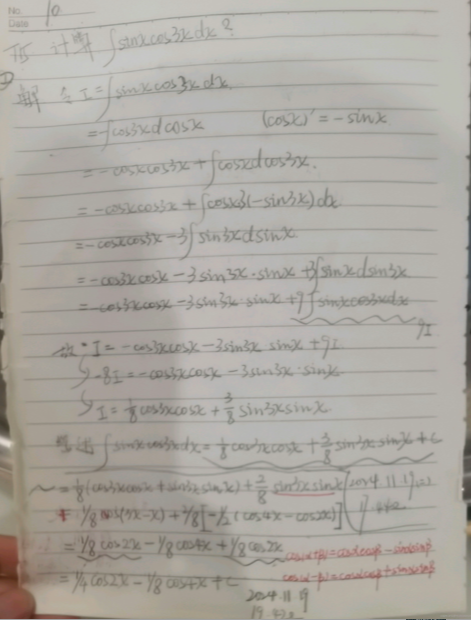 No. 10
Date
计算 ∫sinxcos3xdx?
解 令 I = ∫sinxcos3xdx.
= -∫cos3xdcosx (cosx)' = -sinx
= -cosxcos3x + ∫cosxdcos3x.
= -cosxcos3x + ∫cosx3(-sin3x)dx
= -cosxcos3x - 3∫sin3xdsinx
= -cos3xcosx - 3sin3x·sinx + 3∫sinxdsin3x
= -cos3xcosx - 3sin3x·sinx + 9∫sinxcos3xdx
9I
故: I = -cos3xcosx - 3sin3x sinx + 9I
-8I = -cos3xcosx - 3sin3x·sinx
I = 1/8 cos3xcosx + 3/8 sin3xsinx.
∫sinxcos3xdx = 1/8 cos3xcosx + 3/8 sin3xsinx + C
= 1/8(cos3xcosx + sin3xsinx) + 2/8 sin3xsinx
= 1/8 cos(3x-x) + 2/8[-1/2(cos4x - cos2x)]
= 1/8 cos2x - 1/8 cos4x + 1/8 cos2x
cos(α+β) = cosαcosβ - sinαsinβ
cos(α-β) = cosαcosβ + sinαsinβ
= 1/4 cos2x - 1/8 cos4x + C
2024.11.19